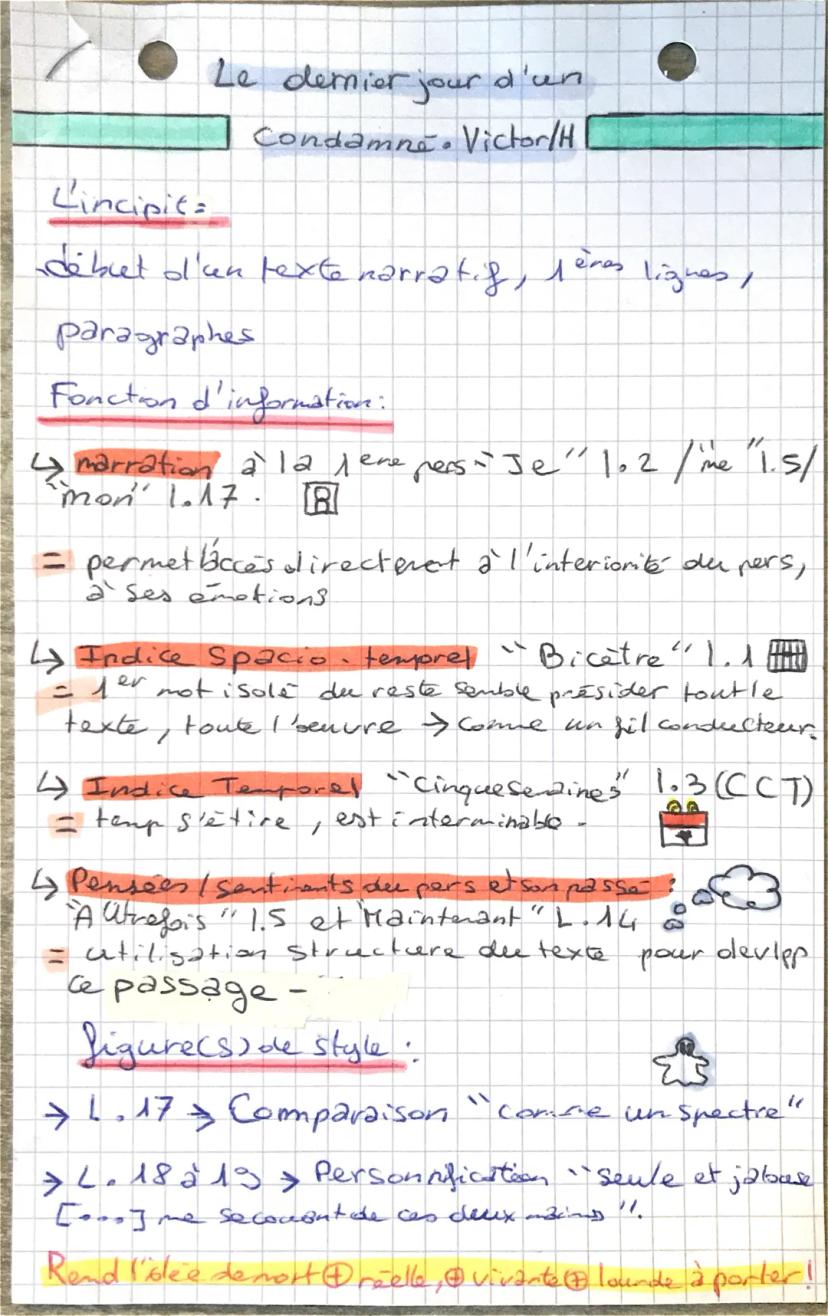 Le dernier jour d'un
Condamné. Victor/H
L'incipit =
début d'un texte narratif, 1ères lignes,
paragraphes
Fonction d'information:
↳ narration à la 1ère pers = "Je" l.2 / "me" l.5/
"mon" l.17.
= permet l'accès directement à l'interiorité du pers,
à ses émotions
↳ Indice Spacio-temporel "Bicêtre" l.1
= 1er mot isolé du reste semble présider tout le
texte, toute l'oeuvre → comme un fil conducteur.
↳ Indice Temporel "Cinq semaines" l.3 (CCT)
= temp s'étire, est interminable.
↳ Pensées / sentiments du pers et son passé :
"Autrefois" l.5 et "Maintenant" L.14
= utilisation structure du texte pour devlpp
ce passage -
figure(s) de style :
→ L.17 → Comparaison "comme un spectre"
→ L.18 à 19 → Personnification "seule et jalouse
[...] me secouant de ces deux mains".
Rend l'idée de mort ⊕ réelle, ⊕ vivante ⊕ lourde à porter !